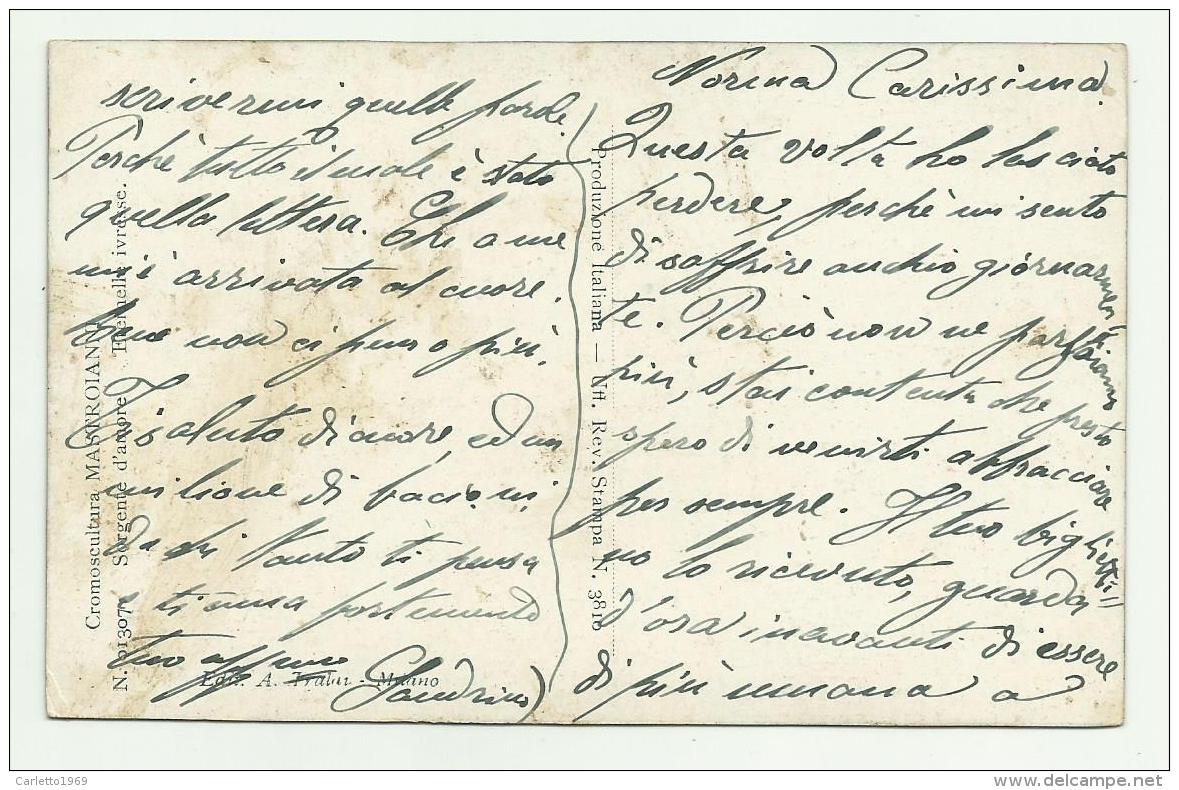 Norina Carissima.
Questa volta ho lasciato
perdere, perchè mi sento
di soffrire anch'io giornarmen=
te. Perciò non ne parliamo
più, stai contenta che presto
spero di venirti abbracciare
per sempre. Il tuo bigliettì=
no lo ricevuto, guarda
d'ora inavanti di essere
di più umana a
scrivermi quelle parole.
Perchè tutto il male è stato
quella lettera. Che a me
mi è arrivata al cuore.
bene non ci penso più.
Ti saluto di cuore ed un
milione di bacioni
da chi tanto ti pensa
e ti ama fortemente
tuo aff.mo Sandrino
Produzione Italiana — Uff. Rev. Stampa N. 3810
Cromoscultura MASTROIANNI
N. 01307 Sorgente d'amore Eternelle ivresse.
Ediz. A. Traldi - Milano
Carletto1969
www.delcampe.net